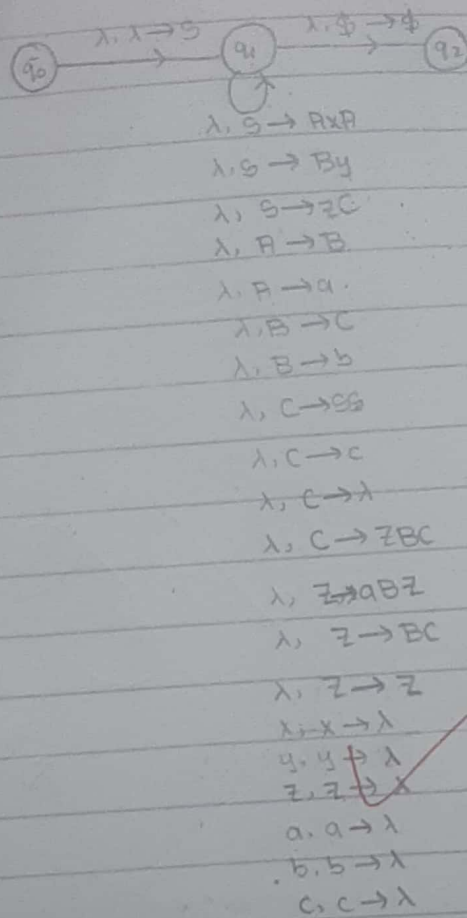 λ, λ → S λ, $ → $
q0 q1 q2
λ, S → AxA
λ, S → By
λ, S → zC
λ, A → B
λ, A → a
λ, B → C
λ, B → b
λ, C → SS
λ, C → c
λ, C → λ
λ, C → ZBC
λ, Z → aBZ
λ, Z → BC
λ, Z → Z
x, x → λ
y, y → λ
z, z → λ
a, a → λ
b, b → λ
c, c → λ